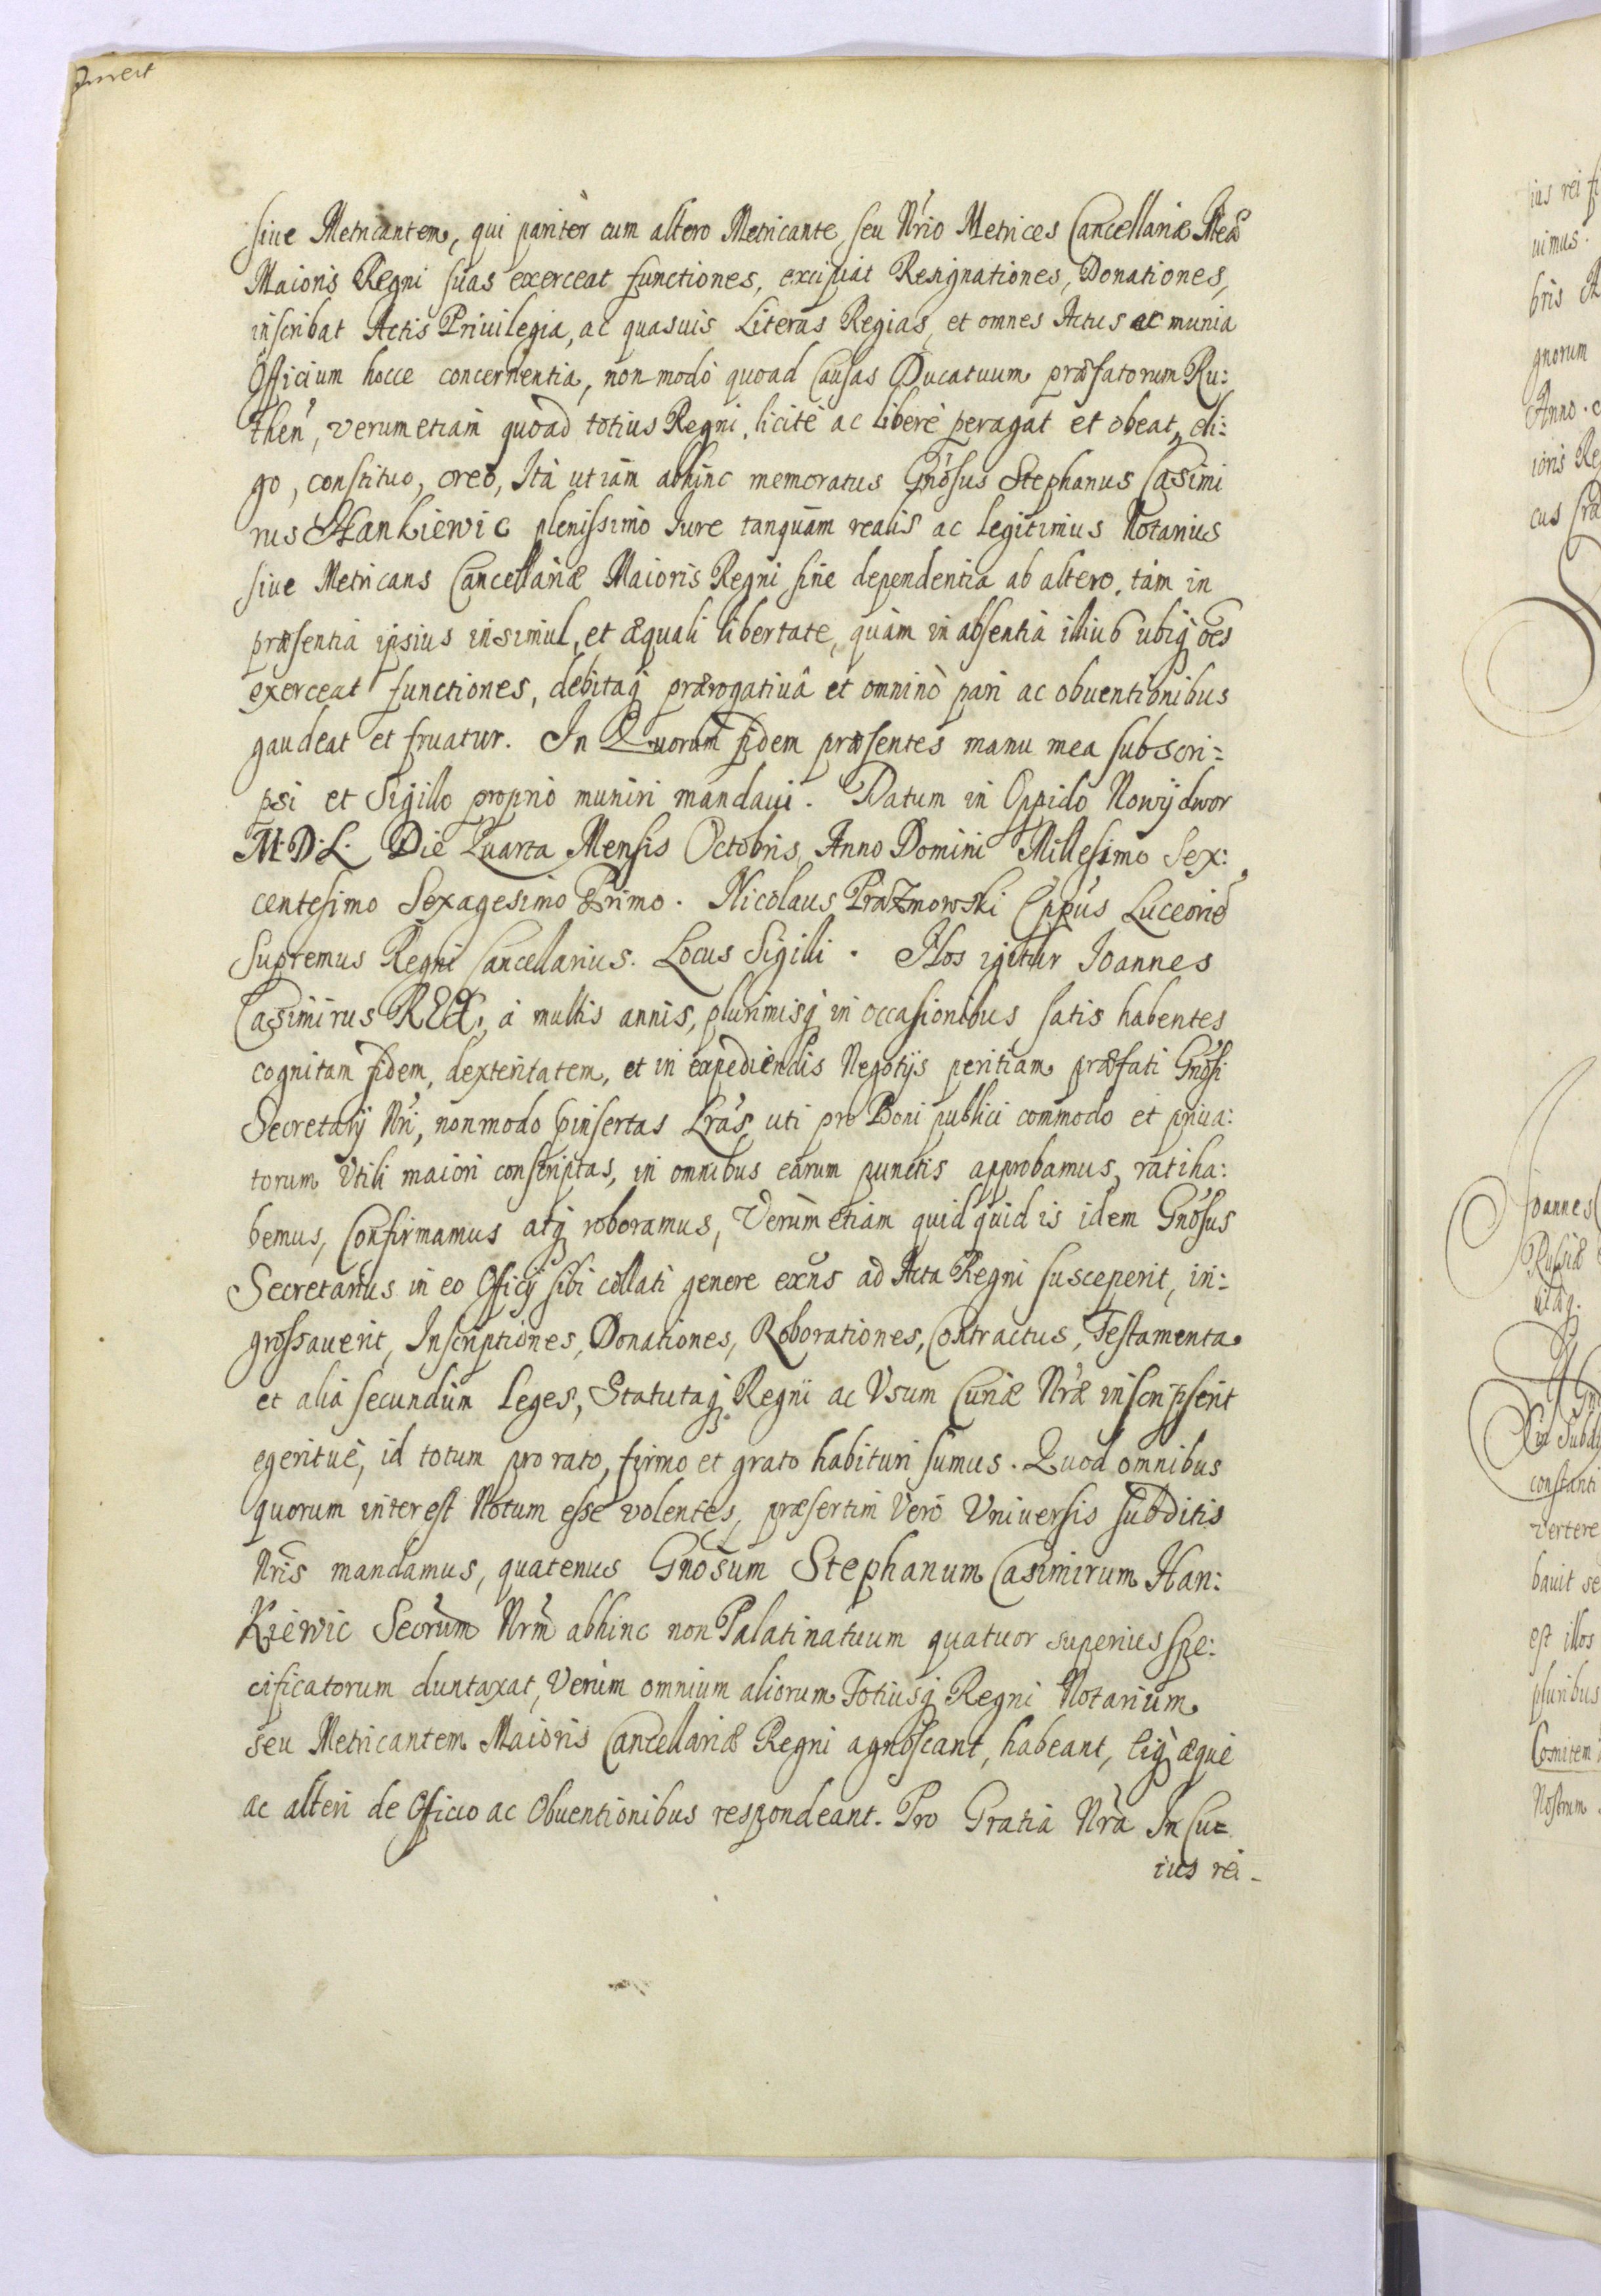 siue Metricantem, qui paritèr cum altero Metricante seu Nrió Metrices Cancellariæ Meæ
Maioris Regni suas exerceat functiones, excipiat Resignationes, Donationes,
inscribat Actis Priuilegia, ac quasuis Literas Regias, et omnes Actus ac munia
Officium hocce concernentia, non modò quoad Causas Ducatuum præfatorum Ru:
then, verum etiam quoad totius Regni, licitè ac liberè peragat et obeat, eli:
go, constituo, creo, Ità ut iàm abhinc memoratus Gnosus Stephanus Casimi
rus Hankiewic plenissimò Iure tanquàm realis ac legitimus Notarius
siue Metricans Cancellariæ Maioris Regni sine dependentia ab altero, tàm in
præsentià ipsius insimul, et æquali libertate, quàm in absentià illius ubiq oes
exerceat functiones, debitaq prærogatiuâ et omninò pari ac obuentionibus
gaudeat et fruatur. In Quorum fidem præsentes manu mea subscri:
psi et Sigillo proprio muniri mandaui. Datum in Oppido Nowydwor
M.D.L. Die Quarta Mensis Octobris, Anno Domini Millesimo Sex:
centesimo Sexagesimo Primo. Nicolaus Prazmowski Eppus Luceorien
Supremus Regni Cancellarius. Locus Sigilli. Nos igitur Ioannes
Casimirus REX, à multis annis, plurimisq in occasionibus satis habentes
cognitam fidem, dexteritatem, et in expediendis Negotijs peritiam præfati Gnosi
Secretarij Nri, non modo pinsertas Lras, uti pro Boni publici commodo et priua:
torum Vtili maiori conscriptas, in omnibus earum punctis approbamus, ratiha:
bemus, Confirmamus atq roboramus, Verùm etiàm quidquid is idem Gnosus
Secretarius in eo Officij sibi collati genere exns ad Acta Regni susceperit, in:
grossauerit, Inscriptiones, Donationes, Roborationes, Contractus, Testamenta
et alia secundùm Leges, Statutaq Regni ac Vsum Curiæ Nræ inscripserit
egeritue, id totum pro rato, firmo et grato habituri sumus. Quod omnibus
quorum interest Notum esse volentes, præsertim Verò Vniuersis subditis
Nris mandamus, quatenus Gnosum Stephanum Casimirum Han:
Kiewic Secrum Nrm abhinc non Palatinatuum quatuor superius spe:
cificatorum duntaxat, Verùm omnium aliorum Totiusq Regni Notarium
seu Metricantem Maioris Cancellariæ Regni agnoscant, habeant, eiq æquè
ac alteri de Officio ac Obuentionibus respondeant. Pro Gratia Nra In Cu:
ius rei